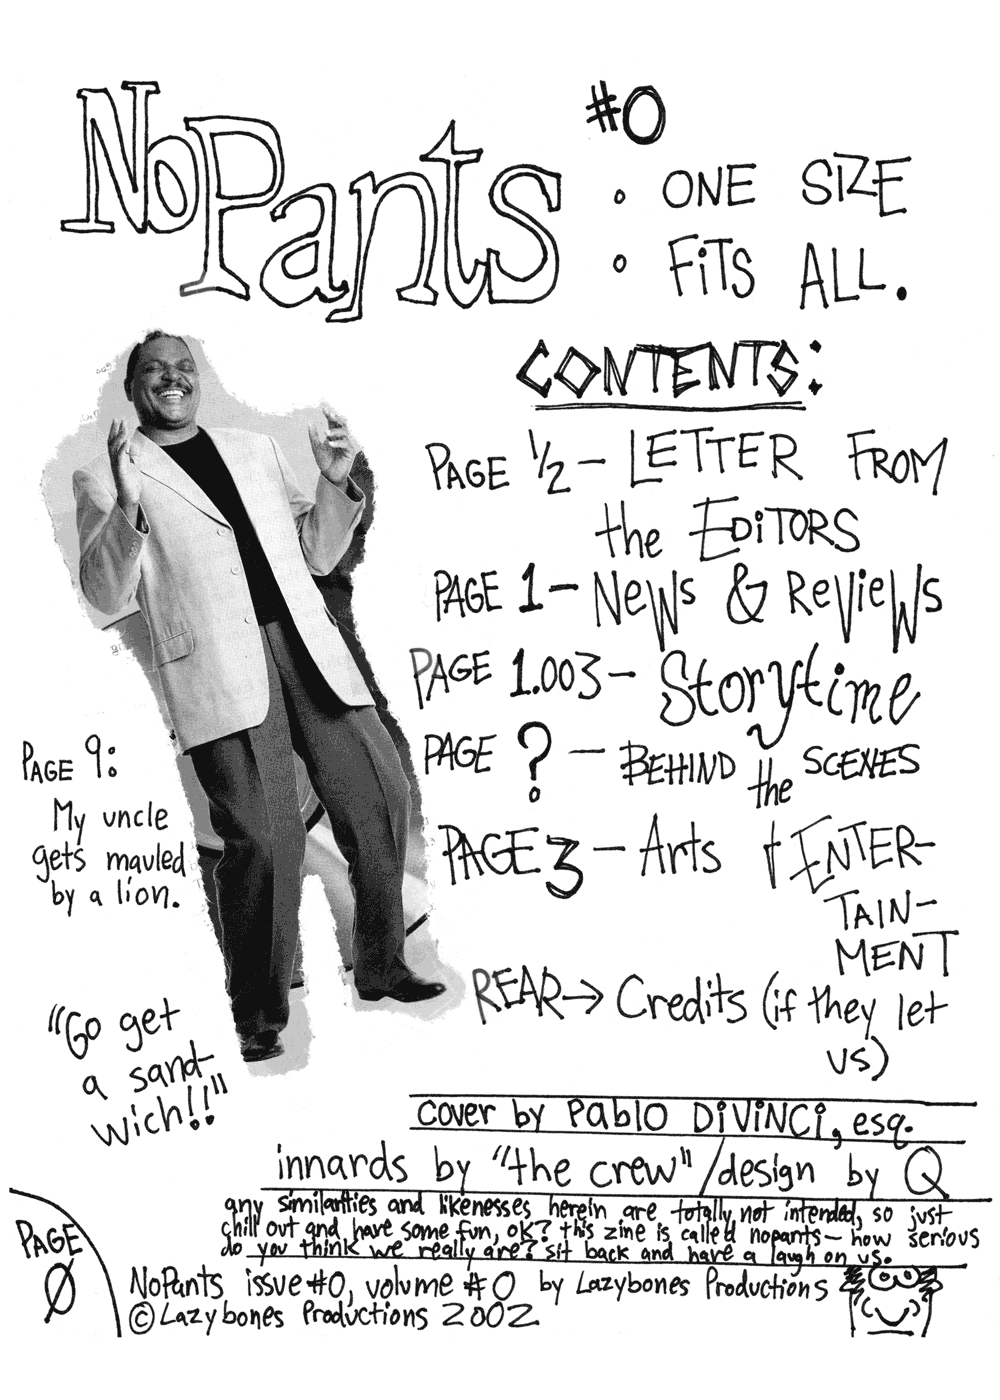 NoPants
#0
: ONE SIZE
: FiTS ALL.
CONTENTS:
PAGE 1/2 – LETTER FROM
the EDiTORS
PAGE 1 – NeWs & ReVieWs
PAGE 1.003 – Storytime
PAGE ? – BEHIND the SCENES
PAGE 3 – Arts & ENTER-
TAIN-
MENT
REAR → Credits (if they let
us)
PAGE 9:
My uncle
gets mauled
by a lion.
"Go get
a sand-
wich!!"
cover by Pablo DiViNCi, esq.
innards by "the crew" / design by Q
any similarities and likenesses herein are totally not intended, so just
chill out and have some fun, ok? this zine is called nopants – how serious
do you think we really are? sit back and have a laugh on us.
PAGE
Ø
NoPants issue #0, volume #0 by Lazybones Productions
© Lazybones Productions 2002